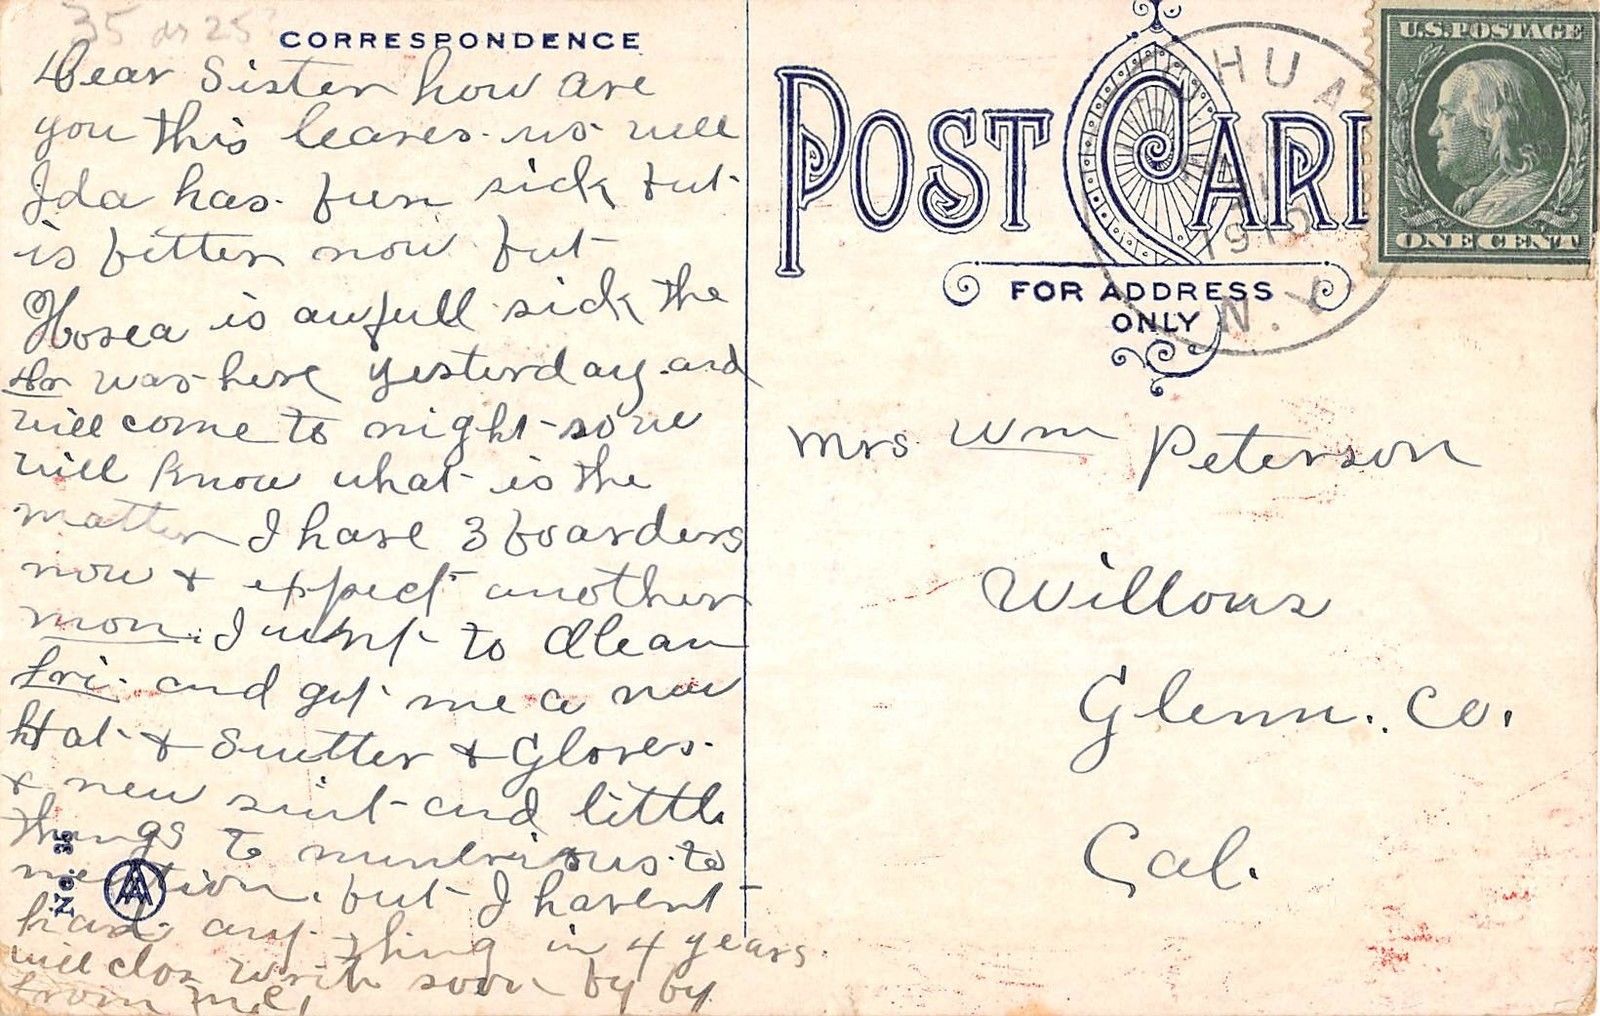 35 or 25?
CORRESPONDENCE
Dear Sister how are
you this leaves us well
Ida has bin sick but
is better now but
Hosea is awfull sick the
Dr was here yesterday and
will come to night so we
will know what is the
matter I have 3 boarders
now & expect another
mon. I went to Olean
Fri. and got me a new
Hat & Suitter & Gloves
& new suit and little
things to numerious to
mention. but I havent
had any thing in 4 years.
will clos write soon by by
from me!
No. 35
POST CARD
FOR ADDRESS
ONLY
HUA
1910
N.Y.
U.S. POSTAGE
ONE CENT
Mrs Wm Peterson
Willows
Glenn. Co.
Cal.